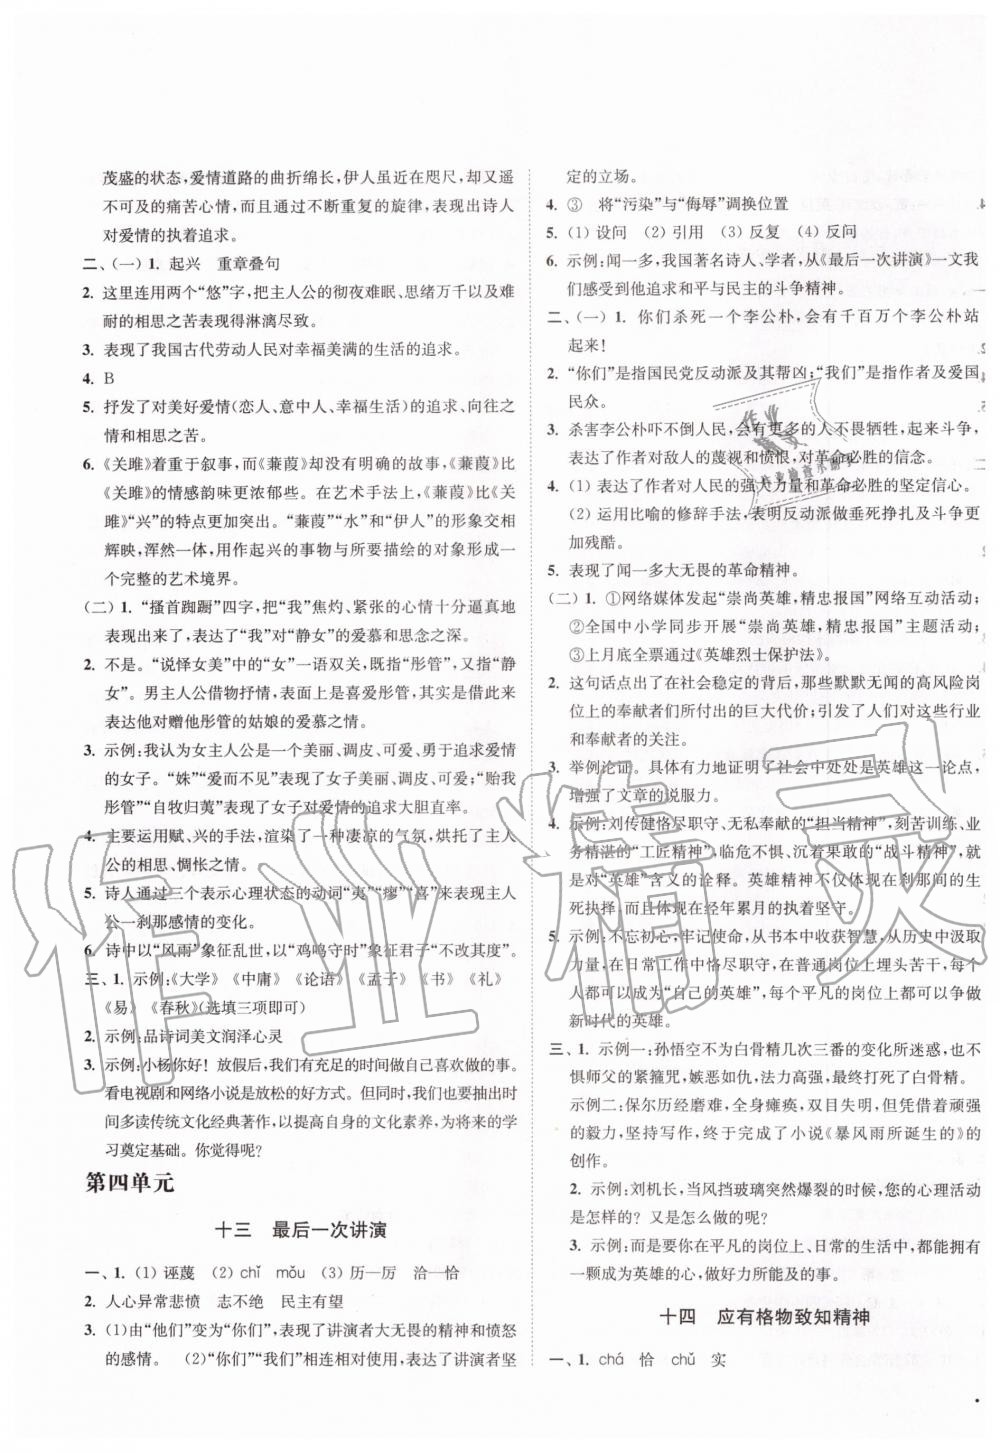 茂盛的状态,爱情道路的曲折绵长,伊人虽近在咫尺,却又遥
不可及的痛苦心情,而且通过不断重复的旋律,表现出诗人
对爱情的执着追求。
二、(一)1. 起兴　重章叠句
2. 这里连用两个“悠”字,把主人公的彻夜难眠、思绪万千以及难
耐的相思之苦表现得淋漓尽致。
3. 表现了我国古代劳动人民对幸福美满的生活的追求。
4. B
5. 抒发了对美好爱情(恋人、意中人、幸福生活)的追求、向往之
情和相思之苦。
6.《关雎》着重于叙事,而《蒹葭》却没有明确的故事,《蒹葭》比
《关雎》的情感韵味更浓郁些。在艺术手法上,《蒹葭》比《关
雎》“兴”的特点更加突出。“蒹葭”“水”和“伊人”的形象交相
辉映,浑然一体,用作起兴的事物与所要描绘的对象形成一
个完整的艺术境界。
(二)1.“搔首踟蹰”四字,把“我”焦灼、紧张的心情十分逼真地
表现出来了,表现了“我”对“静女”的爱慕和思念之深。
2. 不是。“说怿女美”中的“女”一语双关,既指“彤管”,又指“静
女”。男主人公借物抒情,表面是喜爱彤管,其实是借此来
表达他对赠他彤管的姑娘的爱慕之情。
3. 示例:我认为女主人公是一个美丽、调皮、可爱、勇于追求爱情
的女子。“姝”“爱而不见”表现了女子美丽、调皮、可爱;“贻我
彤管”“自牧归荑”表现了女子对爱情的追求大胆直率。
4. 主要运用赋、兴的手法,渲染了一种凄凉的气氛,烘托了主人
公的相思、惆怅之情。
5. 诗人通过三个表示心理状态的动词“夷”“瘳”“喜”来表现主人
公一刹那感情的变化。
6. 诗中以“风雨”象征乱世,以“鸡鸣守时”象征君子“不改其度”。
三、1. 示例:《大学》《中庸》《论语》《孟子》《书》《礼》
《易》《春秋》(选填三项即可)
2. 示例:品诗词美文润泽心灵
3. 示例:小杨你好!放假后,我们有充足的时间做自己喜欢做的事。
看电视剧和网络小说是放松的好方式。但是,我们也要抽出时
间多读传统文化经典著作,以提高自身的文化素养,为将来的学
习奠定基础。你觉得呢?
第四单元
十三　最后一次讲演
一、1. (1) 诬蔑　(2) chǐ　mǒu　(3) 历—厉　洽—恰
2. 人心异常悲愤　志不绝　民主有望
3. (1)由“他们”变为“你们”,表现了讲演者大无畏的精神和愤怒
的感情。　(2)“你们”“我们”相连相对使用,表达了讲演者坚
定的立场。
4. ③　将“污染”与“侮辱”调换位置
5. (1) 设问　(2) 引用　(3) 反复　(4) 反问
6. 示例:闻一多,我国著名诗人、学者,从《最后一次讲演》一文我
们感受到他追求和平与民主的斗争精神。
二、(一)1. 你们杀死一个李公朴,会有千百万个李公朴站
起来!
2.“你们”是指国民党反动派及其帮凶;“我们”是指作者及爱国
民众。
3. 杀害李公朴吓不倒人民,会有更多的人不畏牺牲、前赴后继,
表达了作者对敌人的蔑视和愤恨,对革命必胜的信念。
4. (1) 表达了作者对人民的强大力量和革命必胜的坚定信心。
(2) 运用比喻的修辞手法,表明反动派做垂死挣扎及斗争更
加残酷。
5. 表现了闻一多大无畏的革命精神。
(二)1. ①网络媒体发起“崇尚英雄,精忠报国”网络互动活动;
②全国中小学同步开展“崇尚英雄,精忠报国”主题活动;
③上月底全票通过《英雄烈士保护法》。
2. 这句话点出了在社会稳定的背后,那些默默无闻的高风险岗
位上的奉献者们所付出的巨大代价;引发了人们对这些行业
和奉献者的关注。
3. 举例论证。具体有力地证明了社会中处处是英雄这一论点,
增强了文章的说服力。
4. 示例:刘传健恪尽职守、无私奉献的“担当精神”,刻苦训练、业
务精湛的“工匠精神”,临危不惧、沉着果敢的“战斗精神”,就
是对“英雄”含义的诠释。英雄精神不仅体现在一瞬间的生
死抉择,而且体现在经年累月的执着坚守。
5. 示例:不忘初心,牢记使命,从书本中收获智慧,从历史中汲取
力量,在日常工作中恪尽职守,在普通岗位上埋头苦干,每个
人都可以成为“自己的英雄”,每个平凡的岗位上都可以争做
新时代的英雄。
三、1. 示例一:孙悟空不为白骨精几次三番的变化所迷惑,也不
惧师父的紧箍咒,嫉恶如仇,法力高强,最后打败了白骨精。
示例二:保尔历经磨难,全身瘫痪,双目失明,但凭借着顽强
的毅力,坚持写作,终于完成了小说《暴风雨所诞生的》的
创作。
2. 示例:刘机长,当风挡玻璃突然爆裂的时候,您的心理活动
是怎样的?又是怎么做的呢?
3. 示例:而是要你在平凡的岗位上、日常的生活中,都能拥有
一颗成为英雄的心,做好力所能及的事。
十四　应有格物致知精神
一、1. chá　恰　chǔ　实
作业精灵